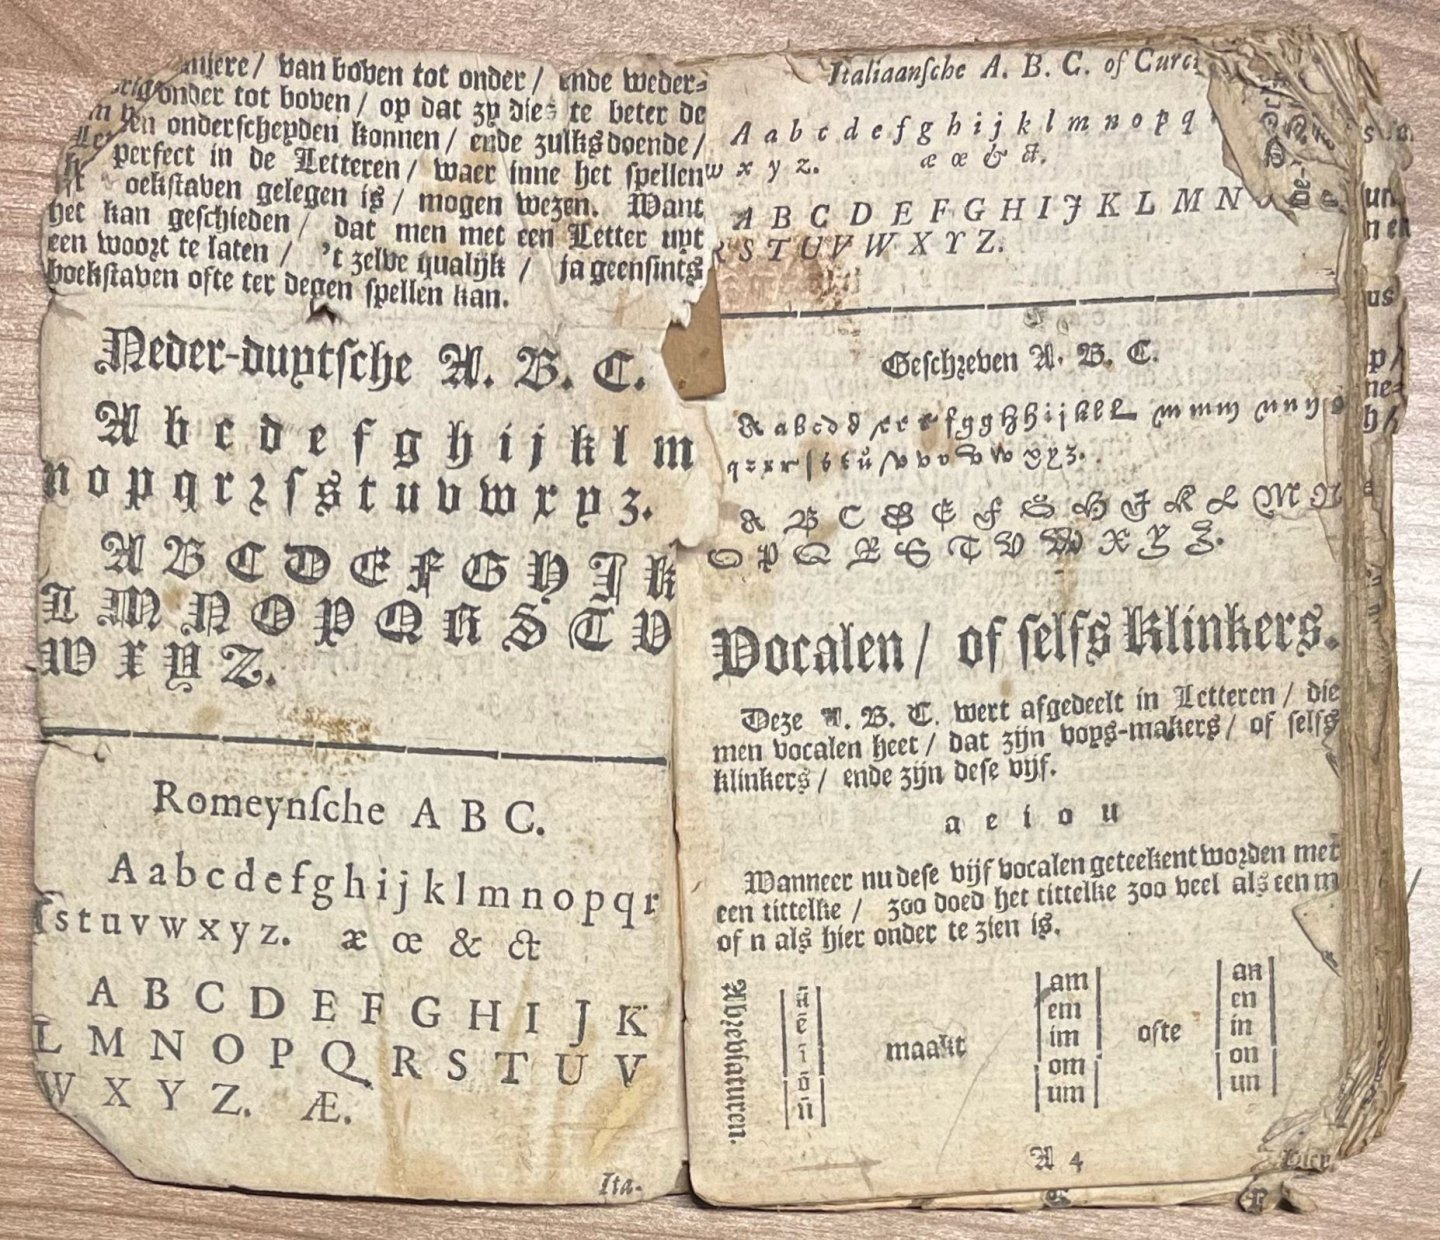 maniere / van boven tot onder / ende weder-
onder tot boven / op dat zy dies te beter de
onderscheyden konnen / ende zulks doende /
perfect in de Letteren / waer inne het spellen
oekstaven gelegen is / mogen wezen. Want
het kan geschieden / dat men met een Letter uyt
een wooꝛt te laten / 't zelve qualijk / ja geensints
boekstaven ofte ter degen spellen kan.
Neder-duytſche A. B. C.
A b c d e f g h i j k l m
n o p q r ꝛ ſ s t u v w x y z.
A B C D E F G H J K
L M N O P Q R S T V
W X Y Z.
Romeynſche A B C.
A a b c d e f g h i j k l m n o p q r
ſ s t u v w x y z. æ œ & ct
A B C D E F G H I J K
L M N O P Q R S T U V
W X Y Z. Æ.
Ita-
Italiaanſche A. B. C. of
A a b c d e f g h i j k l m n o p q
w x y z. æ œ & ct.
A B C D E F G H I J K L M N
S T U V W X Y Z.
Geſchꝛeven A. B. C.
a a b c d d e r e f g g h h i j k l l m m m n n y
v w y z.
A B C D E F G H J K L M N
O P Q R S T V W X Y Z.
Vocalen / of ſelfs klinkers.
Deze A. B. C. wert afgedeelt in Letteren / die
men vocalen heet / dat zijn voys-makers / of ſelfs
klinkers / ende zijn deſe vijf.
a e i o u
Wanneer nu deſe vijf vocalen geteekent woꝛden met
een tittelke / zoo doed het tittelke zoo veel als een m
of n als hier onder te zien is.
Abꝛeviaturen.
ã
ẽ
ĩ
õ
ũ
maakt
am
em
im
om
um
ofte
an
en
in
on
un
A 4
Hier